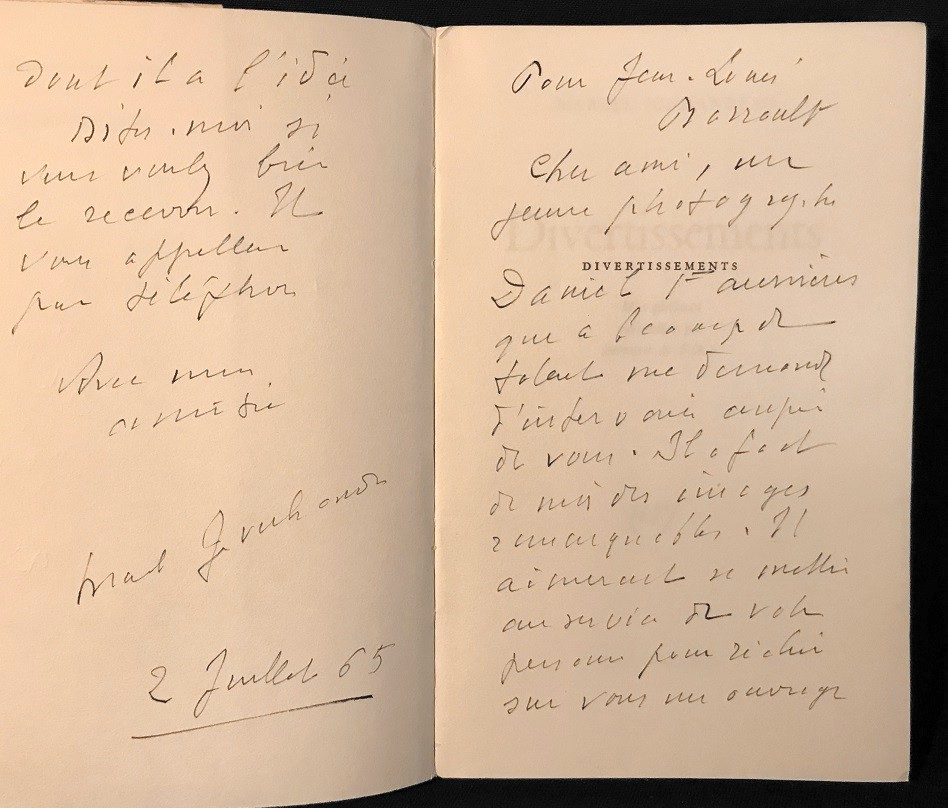 Pour Jean-Louis
Barrault
Cher ami, un
jeune photographe
DIVERTISSEMENTS
Daniel Faunières
qui a beaucoup de
talent me demande
d'intervenir auprès
de vous. Il a fait
de moi des images
remarquables. Il
aimerait se mettre
au service de votre
personne pour
sur vous un ouvrage
dont il a l'idée
Dites-moi si
vous voulez bien
le recevoir. Il
vous appellera
par téléphone
Avec mon
amitié
Marcel Jouhandeau
2 Juillet 65